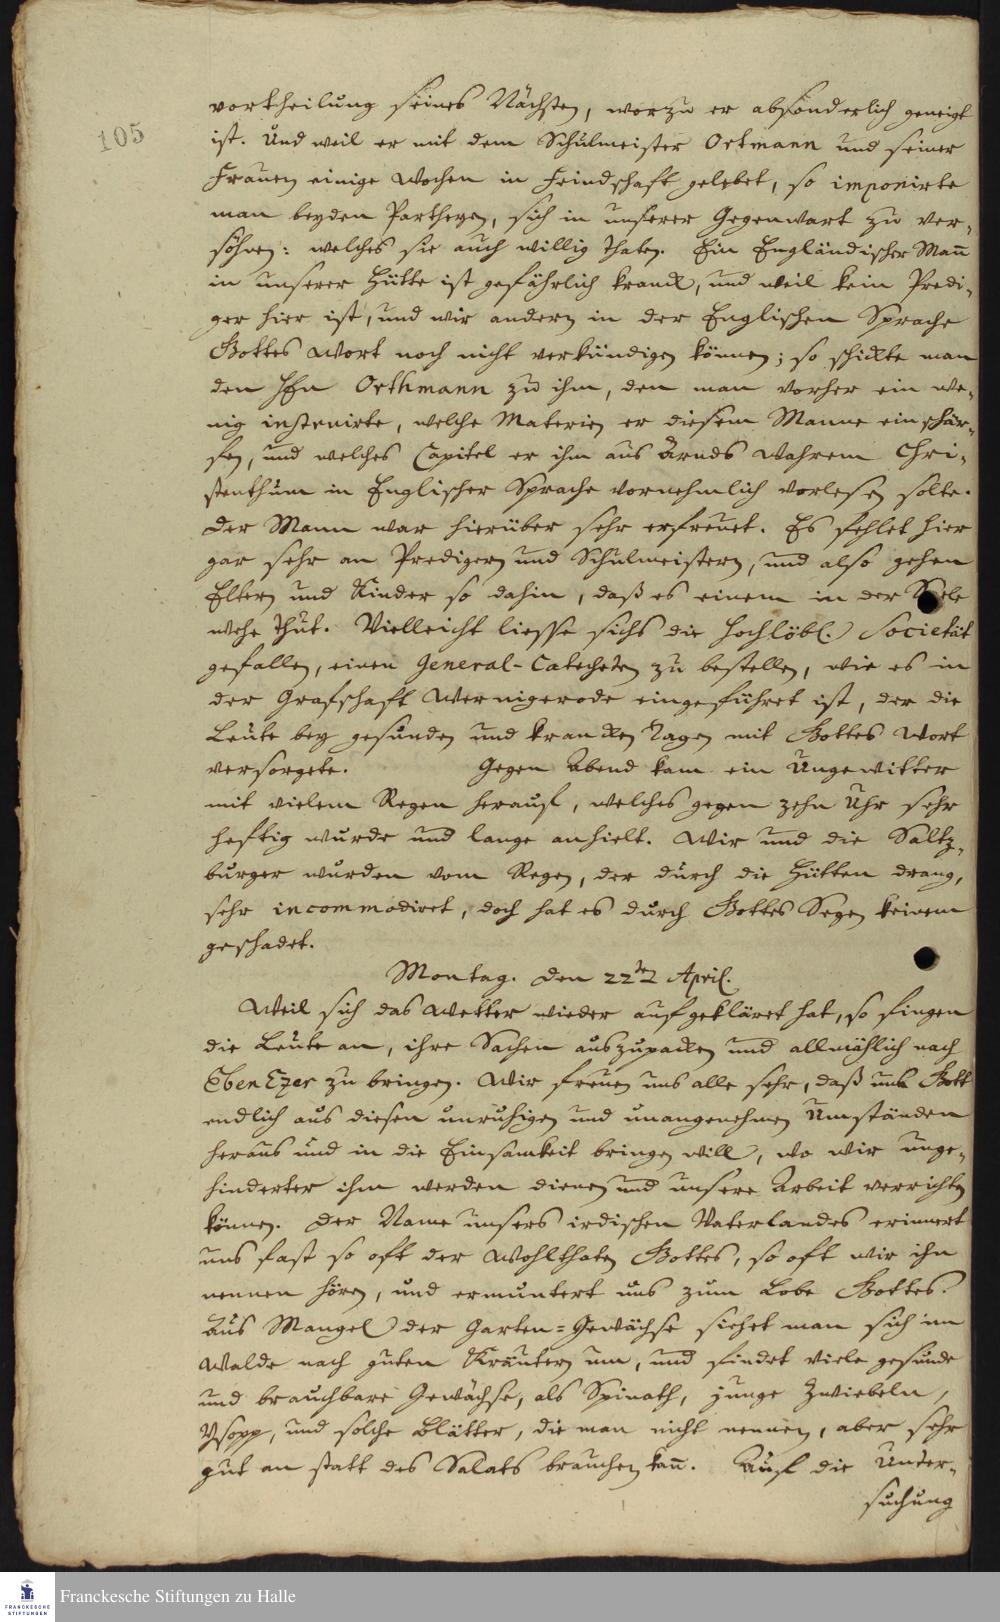 105
vortheilung seines Nächsten, worzu er absonderlich geneigt
ist. Und weil er mit dem Schulmeister Ortmann und seiner
Frauen einige Wochen in Feindschaft gelebet, so imponirte
man beyden Partheyen, sich in unserer Gegenwart zu ver-
söhnen: welches sie auch willig thaten. Ein Engländischer Mañ
in unserer Hütte ist gefährlich kranck, und weil kein Predi-
ger hier ist, und wir andern in der Englischen Sprache
Gottes Wort noch nicht verkündigen können; so schickte man
den HEn Orthmann zu ihm, dem man vorher ein we-
nig instruirte, welche Materien er diesem Manne einschär-
fen, und welches Capitel er ihm aus Arnds Wahrem Chri-
stenthum in Englischer Sprache vornehmlich vorlesen solte.
Der Mann war hierüber sehr erfreuet. Es fehlet hier
gar sehr an Predigern und Schulmeistern, und also gehen
Eltern und Kinder so dahin, daß es einem in der Seele
wehe thut. Vielleicht liesse sichs die Hochlöbl. Societät
gefallen, einen General-Catecheten zu bestellen, wie es in
der Grafschaft Wernigerode eingeführet ist, der die
Leute bey gesunden und krancken Tagen mit Gottes Wort
versorgete. Gegen Abend kam ein Ungewitter
mit vielem Regen herauf, welches gegen zehn Uhr sehr
heftig wurde und lange anhielt. Wir und die Saltz-
burger wurden vom Regen, der durch die Hütten drang,
sehr incommodiret, doch hat es durch Gottes Segen keinem
geschadet.
Montag. den 22ten April.
Weil sich das Wetter wieder aufgekläret hat, so fingen
die Leute an, ihre Sachen auszupacken und allmählich nach
EbenEzer zu bringen. Wir freuen uns alle sehr, daß uns Gott
endlich aus diesen unruhigen und unangenehmen Umständen
heraus und in die Einsamkeit bringen will, wo wir unge-
hinderter ihm werden dienen und unsere Arbeit verrichten
können. Der Name unsers irdischen Vaterlandes erinnert
uns fast so oft der Wohlthaten Gottes, so oft wir ihn
nennen hören, und ermuntert uns zum Lobe Gottes.
Aus Mangel der Garten=Gewächse siehet man sich im
Walde nach guten Kräutern um, und findet viele gesunde
und brauchbare Gewächse, als Spinath, junge Zwiebeln,
Ysopp, und solche Blätter, die man nicht nennen, aber sehr
gut an statt des Salats brauchen kañ. Auf die Unter-
suchung
Franckesche Stiftungen zu Halle
FRANCKESCHE
STIFTUNGEN